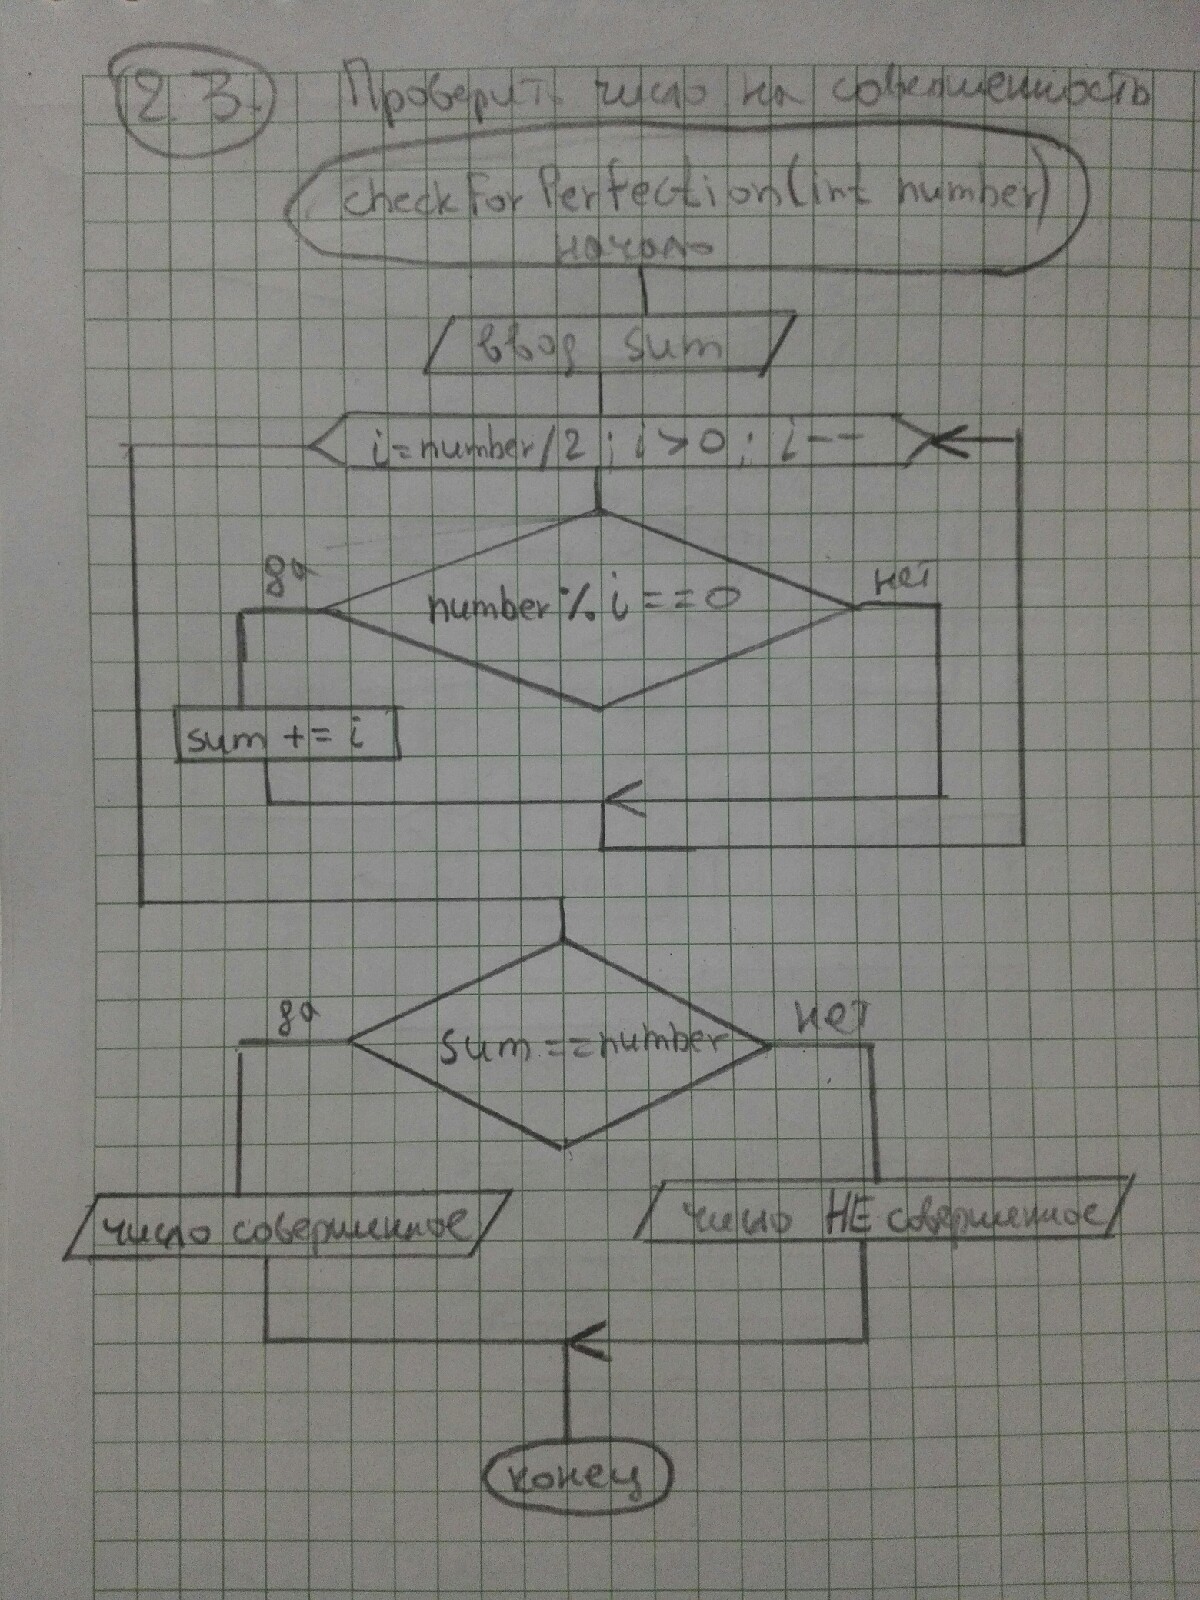 2.3. Проверить число на совершенность
checkForPerfection(int number)
начало
ввод sum
i=number/2; i>0; i--
number % i ==0
да
нет
sum += i
sum ==number
да
нет
число совершенное
число НЕ совершенное
конец